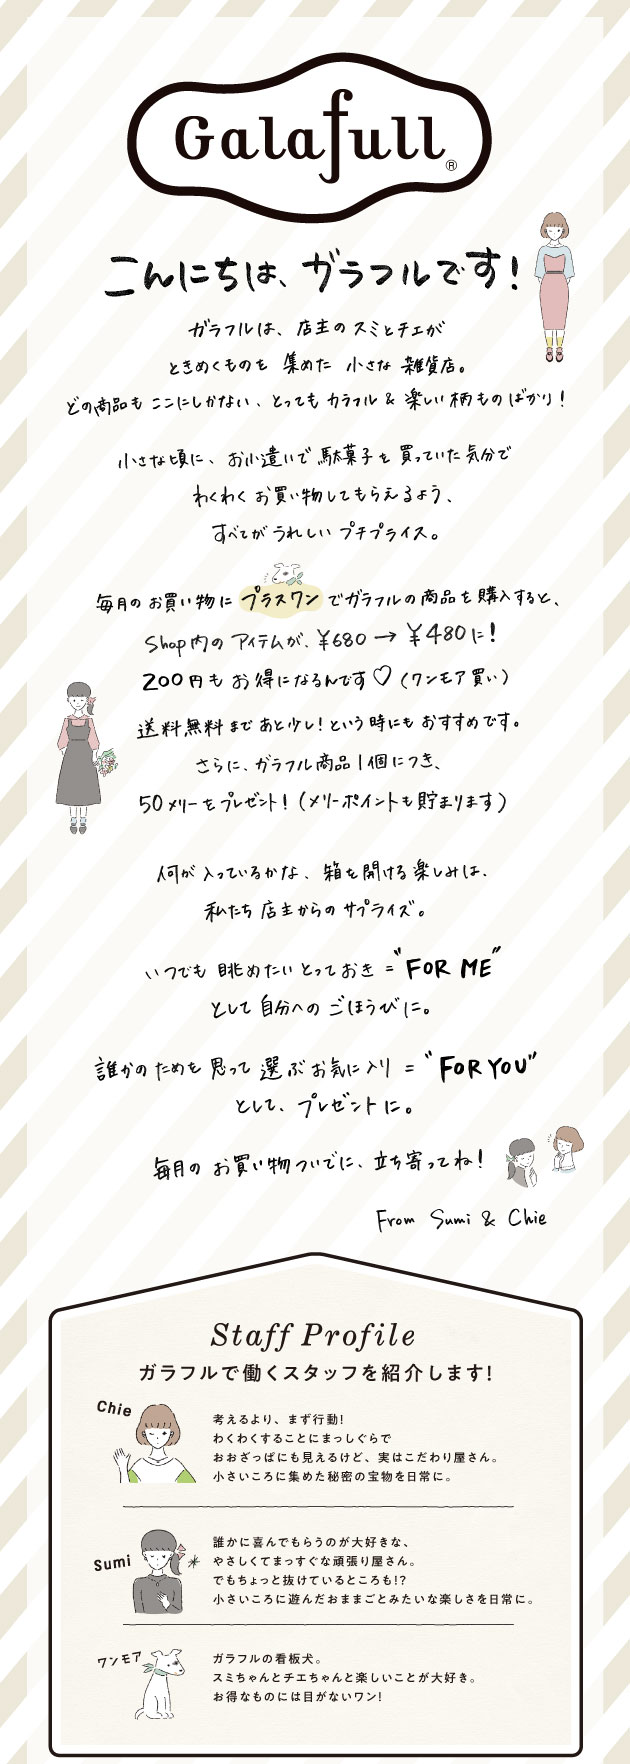 Galafull®
こんにちは、ガラフルです!
ガラフルは、店主のスミとチエが
ときめくものを集めた小さな雑貨店。
どの商品もここにしかない、とってもカラフル&楽しい柄ものばかり!
小さな頃に、お小遣いで駄菓子を買っていた気分で
わくわくお買い物してもらえるよう、
すべてがうれしいプチプライス。
毎月のお買い物にプラスワンでガラフルの商品を購入すると、
Shop内のアイテムが、¥680→¥480に!
200円もお得になるんです♡(ワンモア買い)
送料無料まであと少し!という時にもおすすめです。
さらに、ガラフル商品1個につき、
50メリーをプレゼント!(メリーポイントも貯まります)
何が入っているかな、箱を開ける楽しみは、
私たち店主からのサプライズ。
いつでも眺めたいとっておき="FOR ME"
として自分へのごほうびに。
誰かのためを思って選ぶお気に入り="FOR YOU"
として、プレゼントに。
毎月のお買い物ついでに、立ち寄ってね!
From Sumi & Chie
Staff Profile
ガラフルで働くスタッフを紹介します!
Chie
考えるより、まず行動!
わくわくすることにまっしぐらで
おおざっぱにも見えるけど、実はこだわり屋さん。
小さいころに集めた秘密の宝物を日常に。
Sumi
誰かに喜んでもらうのが大好きな、
やさしくてまっすぐな頑張り屋さん。
でもちょっと抜けているところも!?
小さいころに遊んだおままごとみたいな楽しさを日常に。
ワンモア
ガラフルの看板犬。
スミちゃんとチエちゃんと楽しいことが大好き。
お得なものには目がないワン!